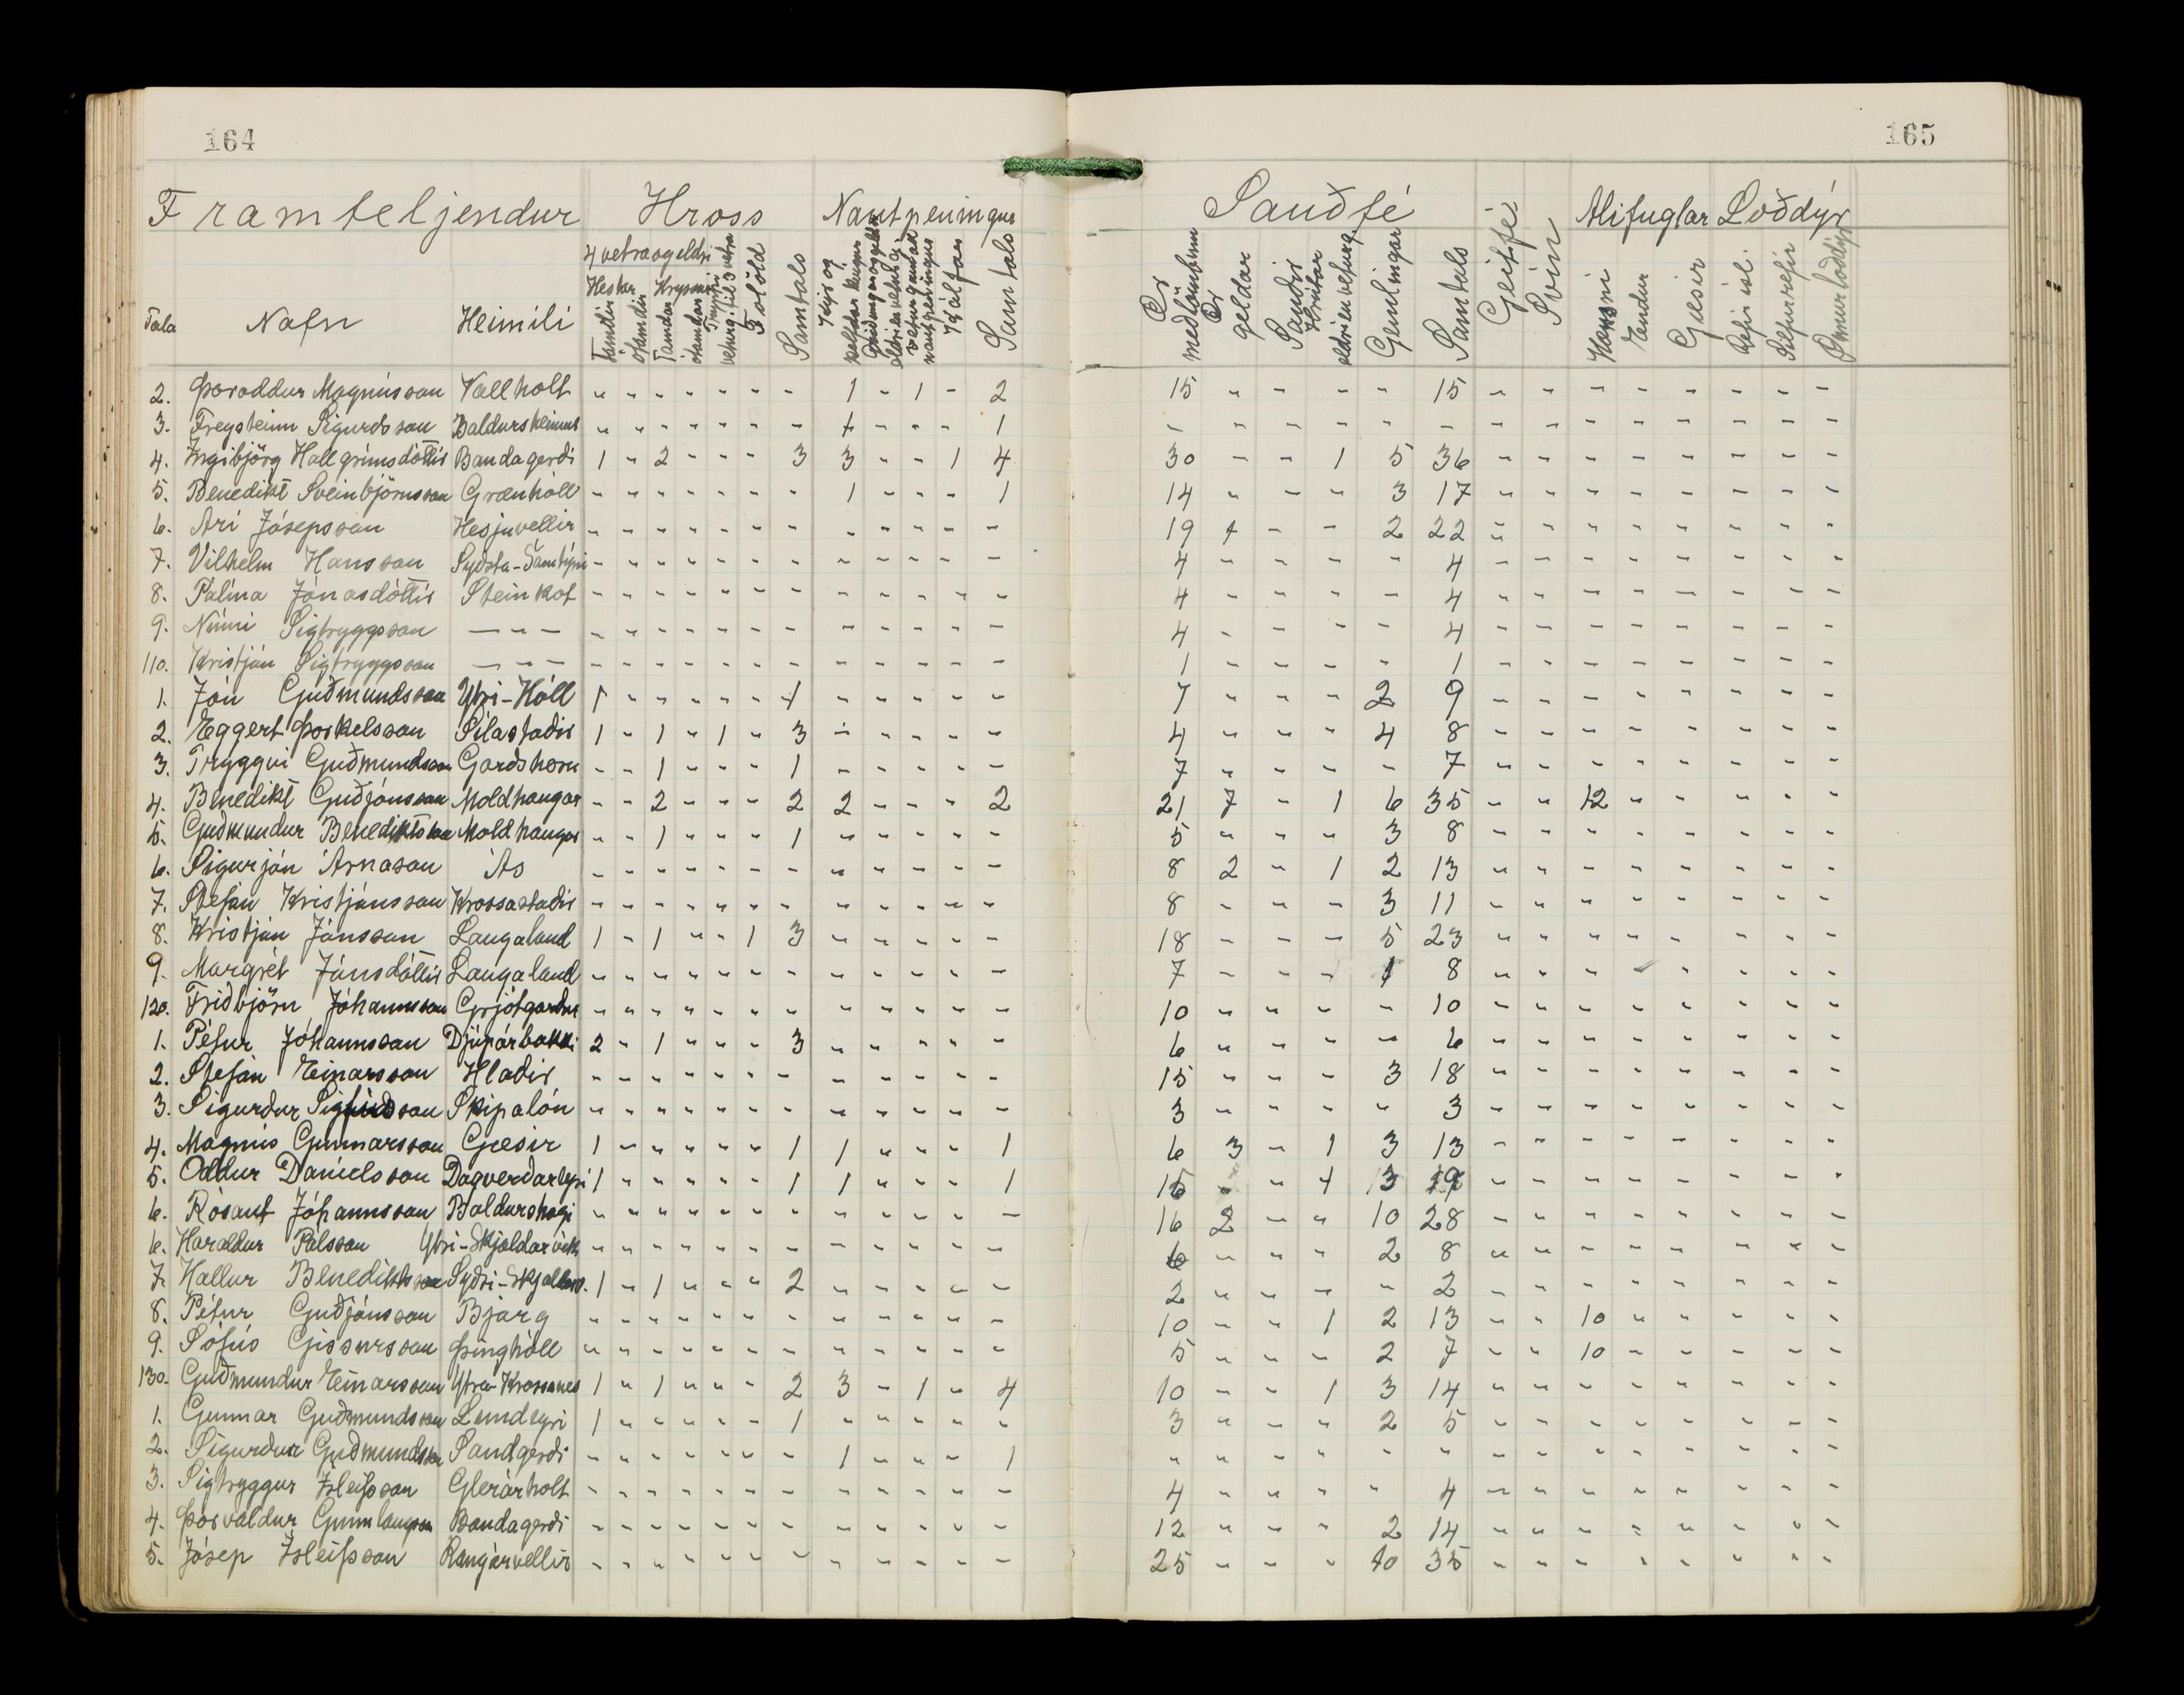 164
165
Framteljendur Hross Nautpeningur Sauðfé Geitfé Svín Alifuglar Loðdýr
Tala Nafn Heimili 4 vetra og eldri Hestar Tamdir ótamdir Hryssur Tamdar ótamdar Tryppi veturg. til 3 vetra Folöld Samtals Kýr og kelfdar kvígur Kálfar Samtals Ær með lömbum Ær geldar Sauðir Hrútar eldri en veturg. Gemlingar Samtals Hænsni Endur Gæsir Refir ísl. Silfurrefir Önnur loðdýr
2. Þóroddur Magnússon Vallholt " - - - - - - 1 - 1 - 2 15 " - - " 15 - - - - - - - -
3. Freysteinn Sigurðsson Baldursheimur " - - - - - - 1 - - - 1 - - - - - - - - - - - - - -
4. Ingibjörg Hallgrímsdóttir Bandagerði 1 - 2 - - - 3 3 - - 1 4 30 - - 1 5 36 - - - - - - - -
5. Benedikt Sveinbjörnsson Grænhóll - - - - - - - 1 - - - 1 14 - - - 3 17 - - - - - - - -
6. Ari Jósepsson Hesjuvellir - - - - - - - - - - - - 19 1 - - 2 22 - - - - - - - -
7. Vilhelm Hansson Syðsta-Samtýni - - - - - - - - - - - - 4 - - - - 4 - - - - - - - -
8. Pálína Jónasdóttir Steinkot - - - - - - - - - - - - 4 - - - - 4 - - - - - - - -
9. Númi Sigtryggsson — " — - - - - - - - - - - - - 4 - - - - 4 - - - - - - - -
110. Kristján Sigtryggsson — " — - - - - - - - - - - - - 1 - - - - 1 - - - - - - - -
1. Jón Guðmundsson Ytri-Hóll 1 - - - - - 1 - - - - - 7 - - - 2 9 - - - - - - - -
2. Eggert Þorkelsson Sílastaðir 1 - 1 - 1 - 3 - - - - - 4 - - - 4 8 - - - - - - - -
3. Tryggvi Guðmundsson Garðshorn - - 1 - - - 1 - - - - - 7 - - - - 7 - - - - - - - -
4. Benedikt Guðjónsson Moldhaugar - - 2 - - - 2 2 - - - 2 21 7 - 1 6 35 - - 12 - - - - -
5. Guðmundur Benediktsson Moldhaugar - - 1 - - - 1 - - - - - 5 - - - 3 8 - - - - - - - -
6. Sigurjón Árnason Ás - - - - - - - - - - - - 8 2 - 1 2 13 - - - - - - - -
7. Stefán Kristjánsson Krossastaðir - - - - - - - - - - - - 8 - - - 3 11 - - - - - - - -
8. Kristján Jónsson Laugaland 1 - 1 - - 1 3 - - - - - 18 - - - 5 23 - - - - - - - -
9. Margrét Jónsdóttir Laugaland - - - - - - - - - - - - 7 - - - 1 8 - - - - - - - -
120. Friðbjörn Jóhannsson Grjótgarður - - - - - - - - - - - - 10 - - - - 10 - - - - - - - -
1. Pétur Jóhannsson Djúpárbakki 2 - 1 - - - 3 - - - - - 6 - - - - 6 - - - - - - - -
2. Stefán Einarsson Hlaðir - - - - - - - - - - - - 15 - - - 3 18 - - - - - - - -
3. Sigurður Sigfússon Skipalón - - - - - - - - - - - - 3 - - - - 3 - - - - - - - -
4. Magnús Gunnarsson Gæsir 1 - - - - - 1 1 - - - 1 6 3 - 1 3 13 - - - - - - - -
5. Oddur Daníelsson Dagverðareyri 1 - - - - - 1 1 - - - 1 15 - - 1 3 19 - - - - - - - -
6. Rósant Jóhannsson Baldurshagi - - - - - - - - - - - - 16 2 - - 10 28 - - - - - - - -
6. Haraldur Pálsson Ytri-Skjaldarvík - - - - - - - - - - - - 6 - - - 2 8 - - - - - - - -
7. Hallur Benediktsson Syðri-Skjaldarv. 1 - 1 - - - 2 - - - - - 2 - - - - 2 - - - - - - - -
8. Pétur Guðjónsson Bjarg - - - - - - - - - - - - 10 - - 1 2 13 - - 10 - - - - -
9. Sófús Gissursson Þinghóll - - - - - - - - - - - - 5 - - - 2 7 - - 10 - - - - -
130. Guðmundur Einarsson Ytra-Krossanes 1 - 1 - - - 2 3 - 1 - 4 10 - - 1 3 14 - - - - - - - -
1. Gunnar Guðmundsson Lundeyri 1 - - - - - 1 - - - - - 3 - - - 2 5 - - - - - - - -
2. Sigurður Guðmundsson Sandgerði - - - - - - - 1 - - - 1 - - - - - - - - - - - - - -
3. Sigtryggur Ísleifsson Glerárholt - - - - - - - - - - - - 4 - - - - 4 - - - - - - - -
4. Þorvaldur Gunnlaugsson Bandagerði - - - - - - - - - - - - 12 - - - 2 14 - - - - - - - -
5. Jósep Ísleifsson Rangárvellir - - - - - - - - - - - - 25 - - - 10 35 - - - - - - - -